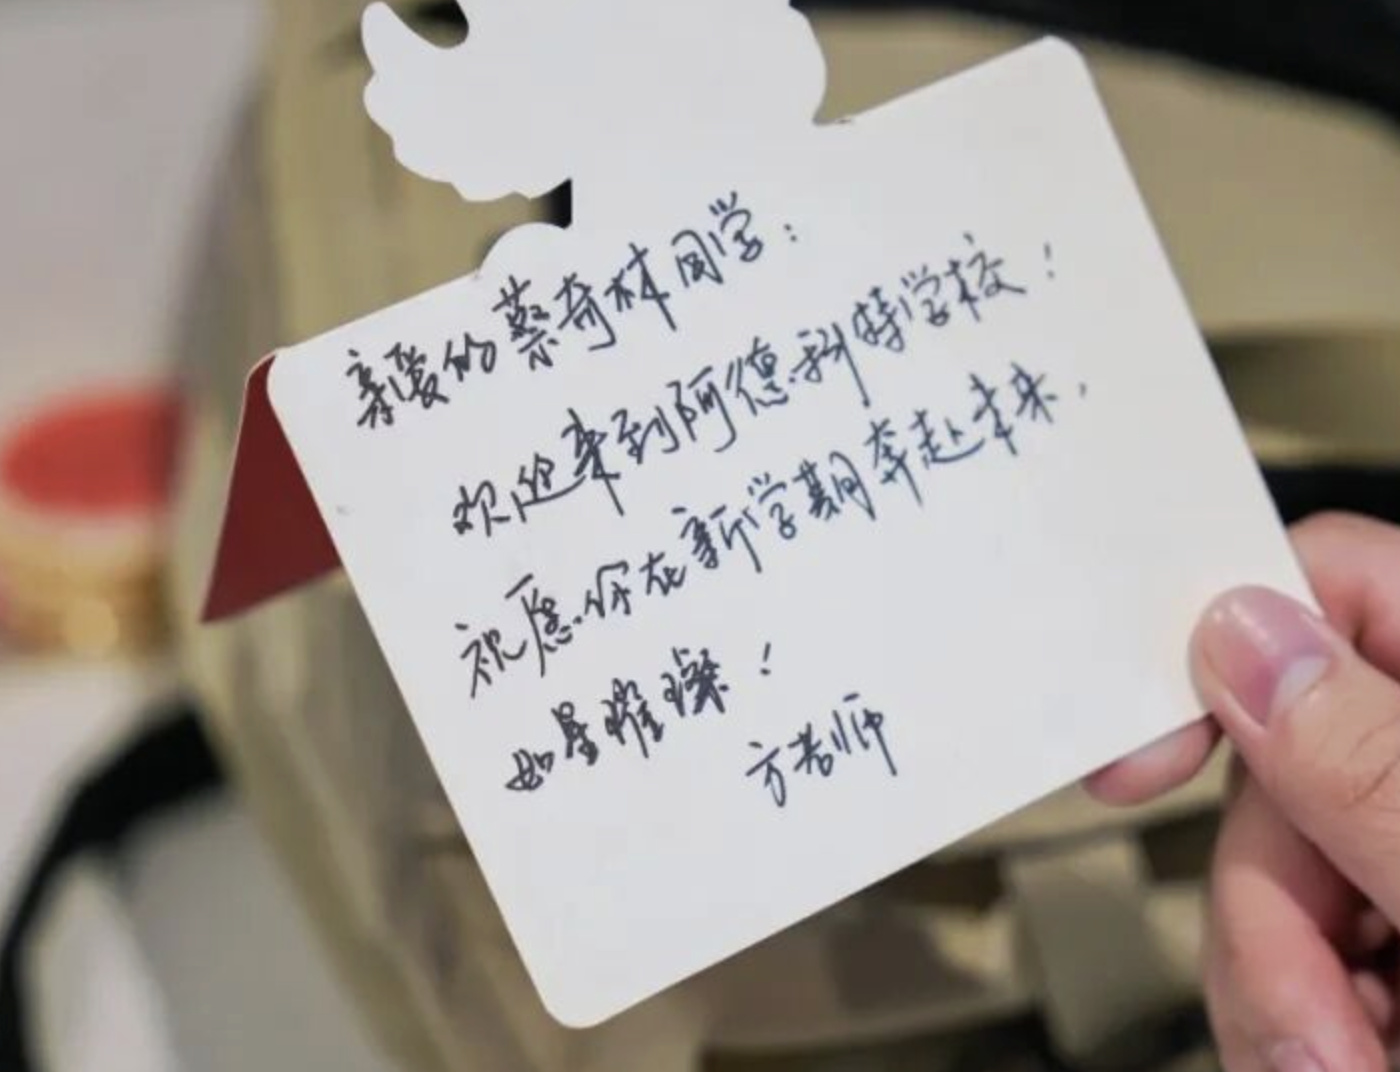 亲爱的蔡奇林同学：
欢迎来到阿德科特学校！
祝愿你在新学期奔赴未来，
如星璀璨！
方老师